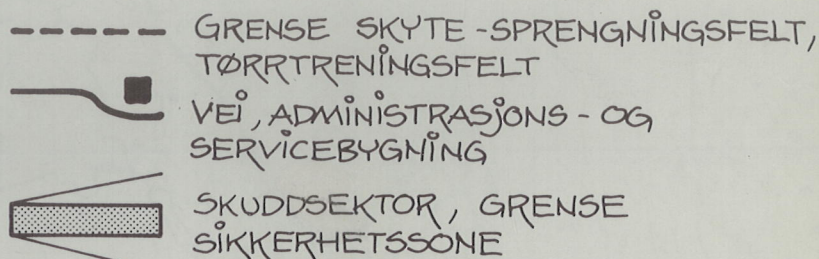 GRENSE SKYTE-SPRENGNINGSFELT,
TØRRTRENINGSFELT
VEI, ADMINISTRASJONS- OG
SERVICEBYGNING
SKUDDSEKTOR, GRENSE
SIKKERHETSSONE